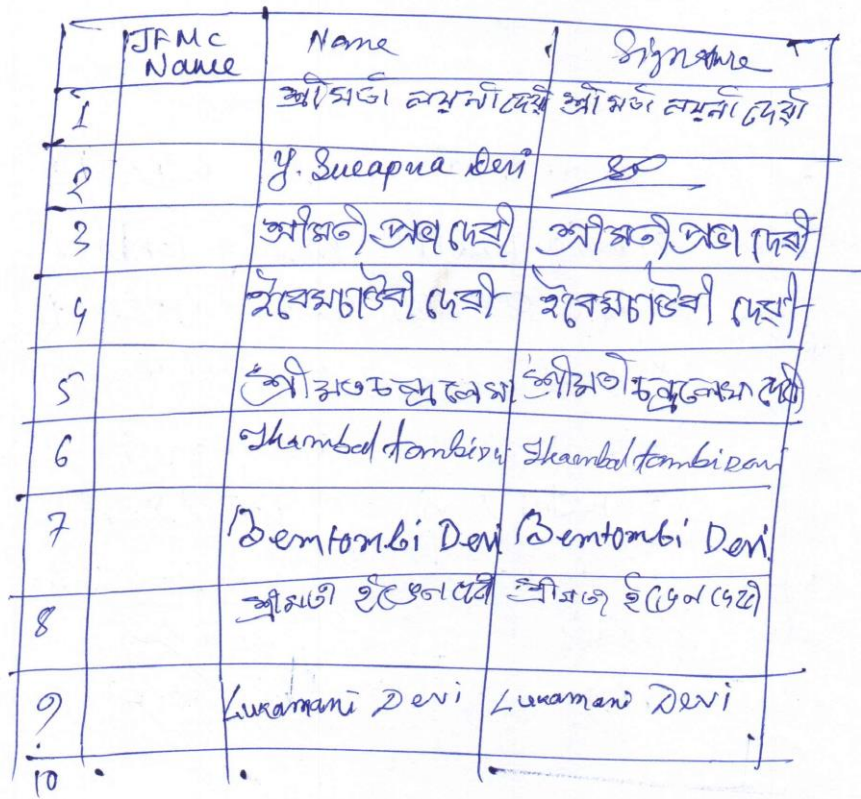 JFMC Name Name Signature
1 শ্রীমতী নয়নী দেবী শ্রীমতী নয়নী দেবী
2 Y. Devi
3 শ্রীমতী প্রভা দেবী শ্রীমতী প্রভা দেবী
4 ইবেমচাউবী দেবী ইবেমচাউবী দেবী
5 শ্রীমত চন্দ্রলেখা শ্রীমতী চন্দ্রলেখা দেবী
6 Thambal tombi Thambal tombi Devi
7 Bemtombi Devi Bemtombi Devi
8 শ্রীমতী ইভেন দেবী শ্রীমতী ইভেন দেবী
9 Lukamani Devi Lukamani Devi
10